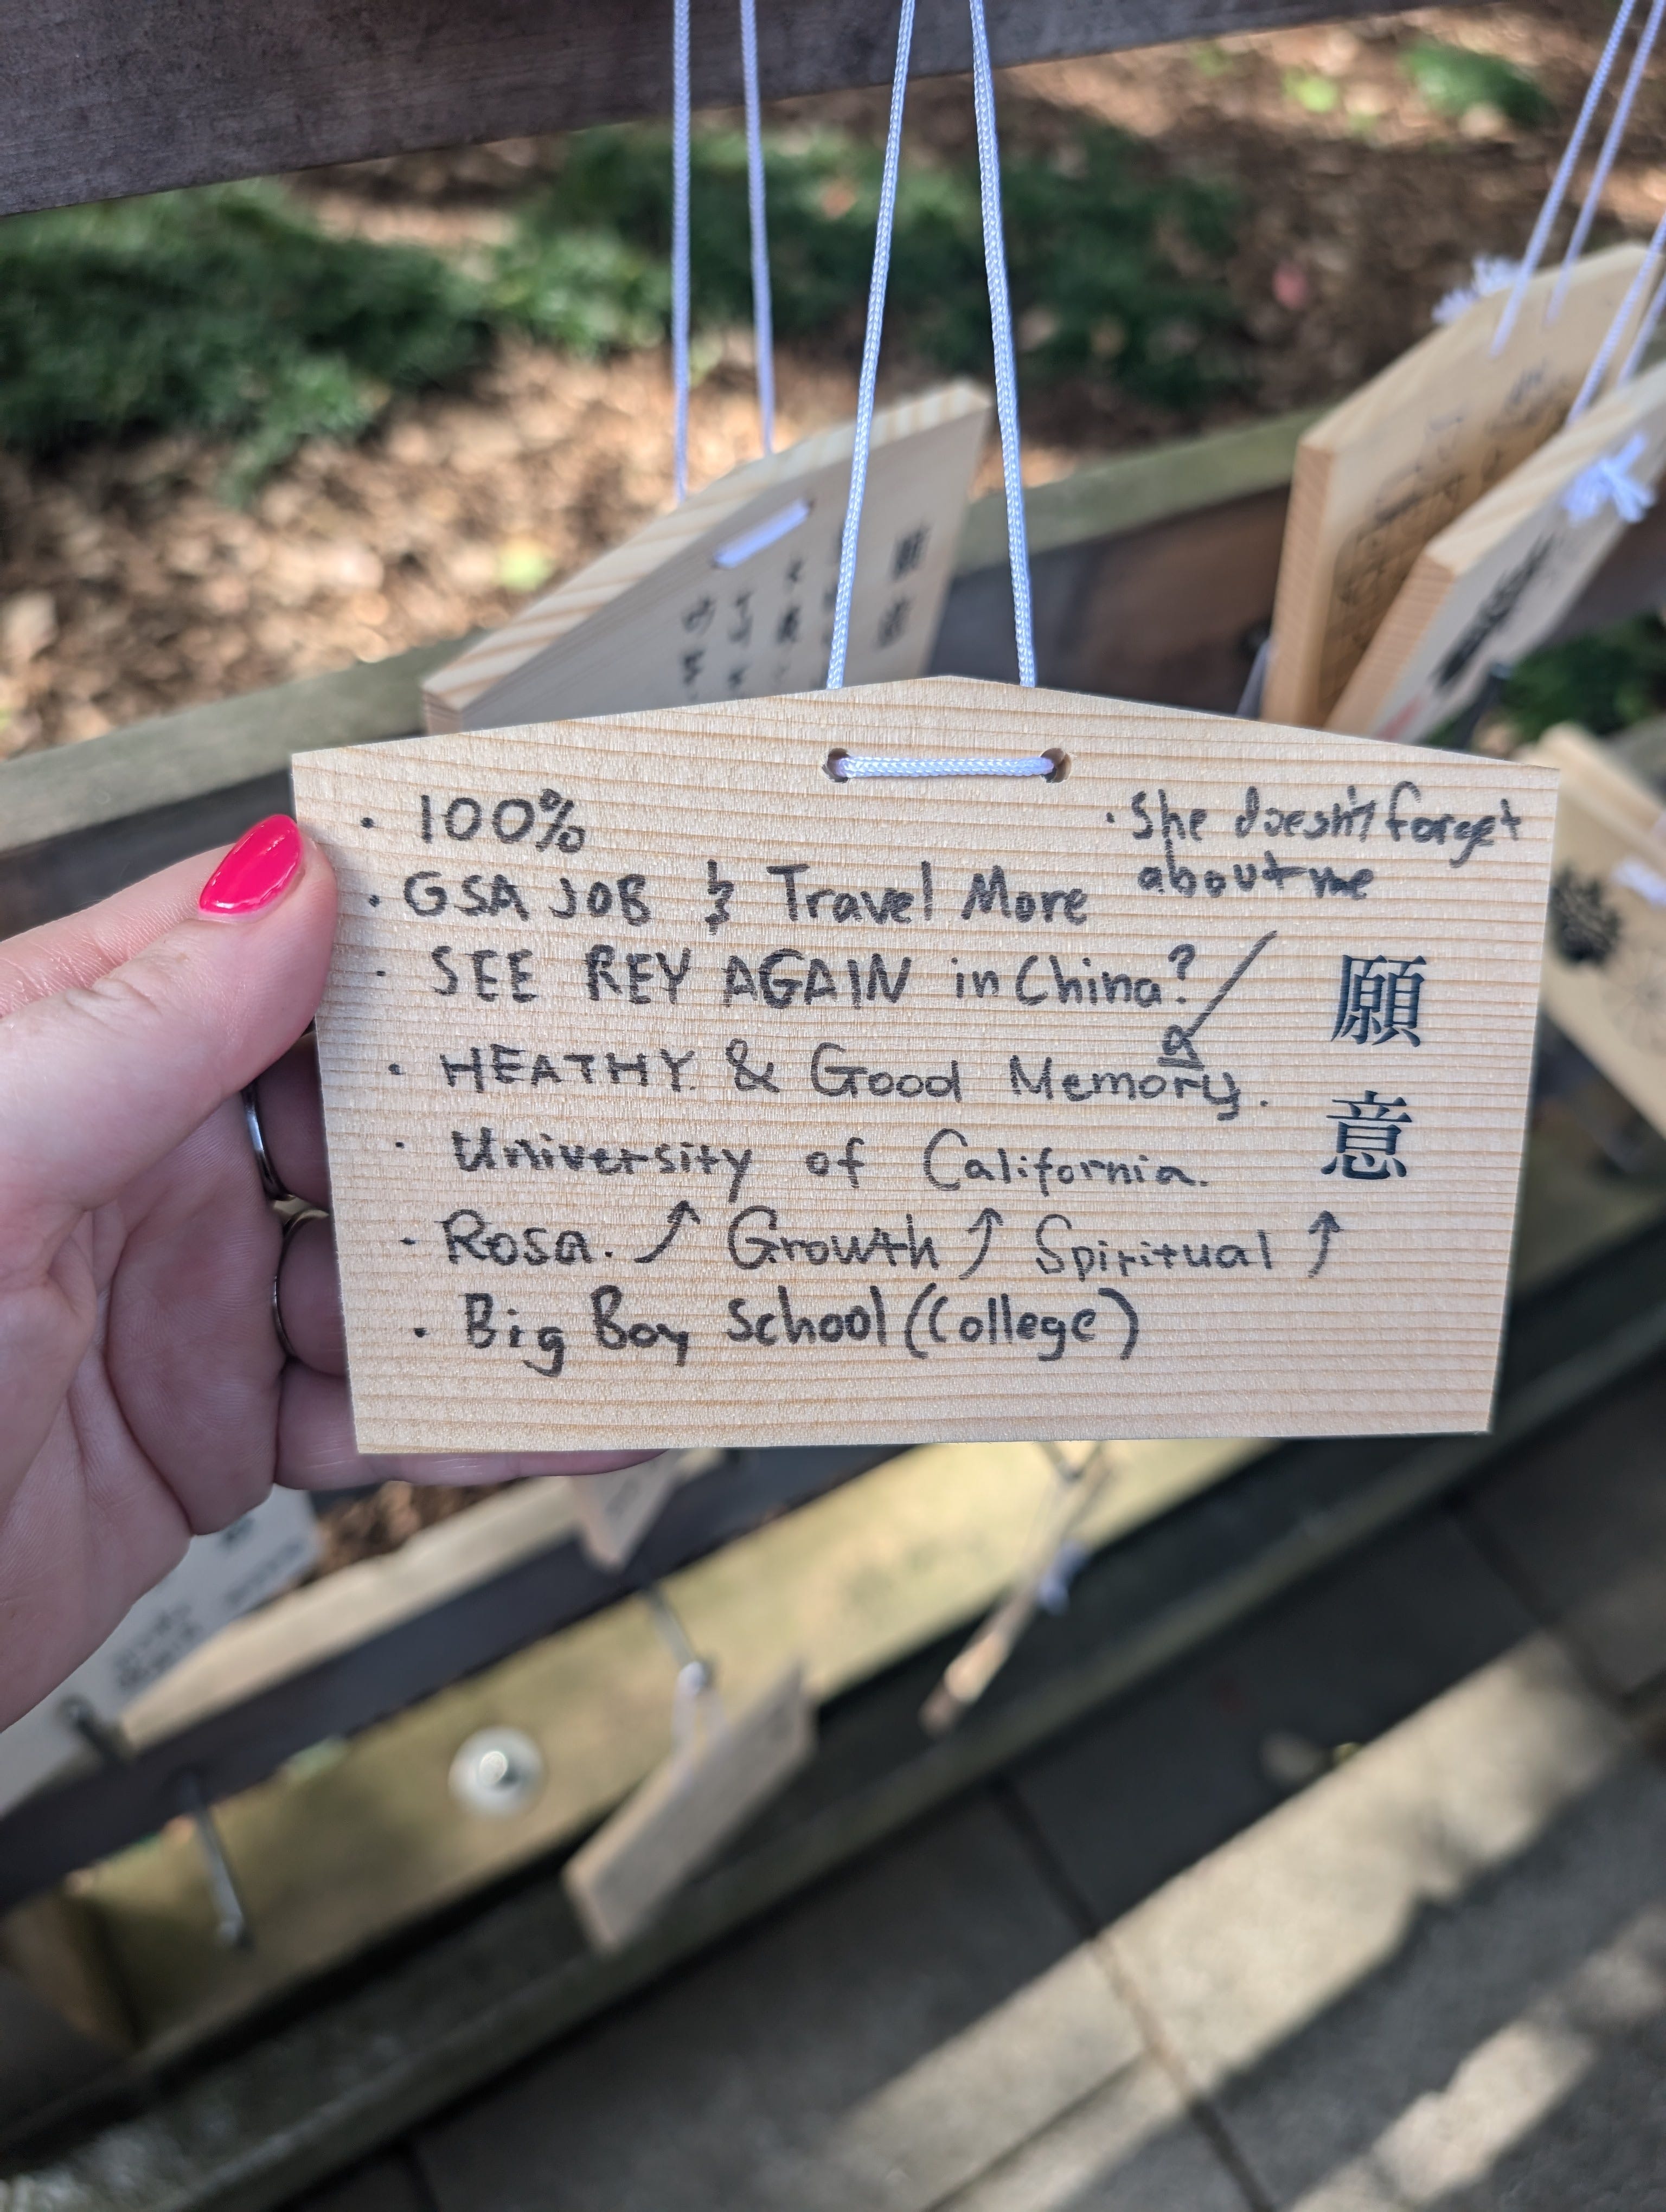 · 100%
· GSA JOB & Travel More
· SEE REY AGAIN in China?
· HEATHY & Good Memory.
· University of California.
· Rosa. ↗ Growth ↗ Spiritual ↑
· Big Boy School (College)
· She doesn't forget
about me
願
意